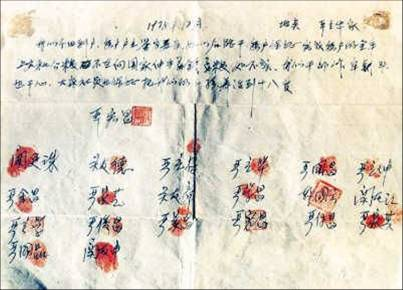 1978年12月 地点 严立华家
我们分田到户每户户主签字盖章如以后能干每户保证完成每户的全年
上交和公粮不在向国家伸手要钱要粮如不成我们干部作牢刹
头也干心大家社员也保证把我们的小孩养活到十八岁
严宏昌
关廷珠 关友德 严立符 严立华 严国昌 严立坤
严金昌 严家芝 关友章 严学昌 韩国云 关友江
严立学 严俊昌 严美昌 严付昌
严国品 关友申